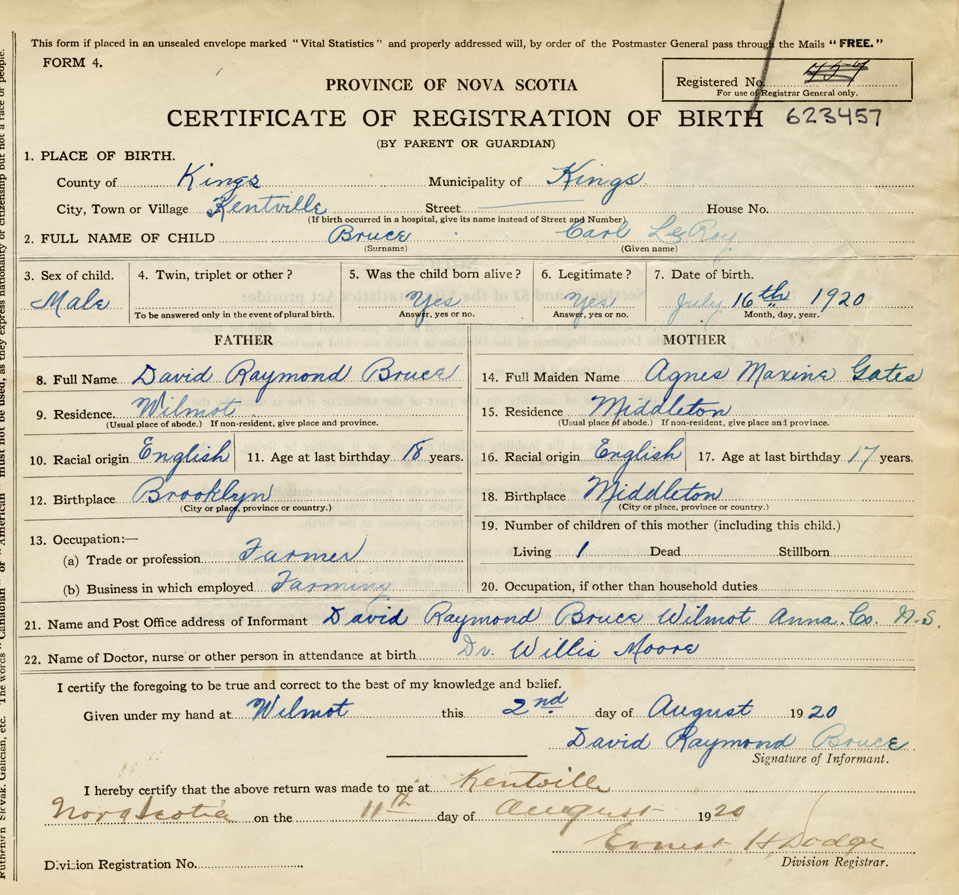 This form if placed in an unsealed envelope marked "Vital Statistics" and properly addressed will, by order of the Postmaster General pass through the Mails "FREE."
FORM 4.
PROVINCE OF NOVA SCOTIA
Registered No. 457
For use of Registrar General only.
CERTIFICATE OF REGISTRATION OF BIRTH 623457
(BY PARENT OR GUARDIAN)
1. PLACE OF BIRTH.
County of Kings Municipality of Kings
City, Town or Village Kentville Street House No.
(If birth occurred in a hospital, give its name instead of Street and Number)
2. FULL NAME OF CHILD Bruce Carl LeRoy
(Surname) (Given name)
3. Sex of child. 4. Twin, triplet or other? 5. Was the child born alive? 6. Legitimate? 7. Date of birth.
Male Yes Yes July 16th 1920
To be answered only in the event of plural birth. Answer, yes or no. Answer, yes or no. Month, day, year.
FATHER MOTHER
8. Full Name David Raymond Bruce 14. Full Maiden Name Agnes Maxine Gates
9. Residence. Wilmot 15. Residence Middleton
(Usual place of abode.) If non-resident, give place and province. (Usual place of abode.) If non-resident, give place and province.
10. Racial origin English 11. Age at last birthday 18 years. 16. Racial origin English 17. Age at last birthday 17 years.
12. Birthplace Brooklyn 18. Birthplace Middleton
(City or place, province or country.) (City or place, province or country.)
13. Occupation:— 19. Number of children of this mother (including this child.)
(a) Trade or profession Farmer Living 1 Dead Stillborn
(b) Business in which employed Farming 20. Occupation, if other than household duties
21. Name and Post Office address of Informant David Raymond Bruce Wilmot Anna. Co. N.S.
22. Name of Doctor, nurse or other person in attendance at birth Dr. Willis Moore
I certify the foregoing to be true and correct to the best of my knowledge and belief.
Given under my hand at Wilmot this 2nd day of August 1920
David Raymond Bruce
Signature of Informant.
I hereby certify that the above return was made to me at Kentville
Nova Scotia on the 11th day of August 1920
Ernest H Dodge
Division Registrar.
Division Registration No.
must not be used, as they express nationality or citizenship but not a race or people.
Ruthenian Slovak, Galician, etc. The words "Canadian" or "American"